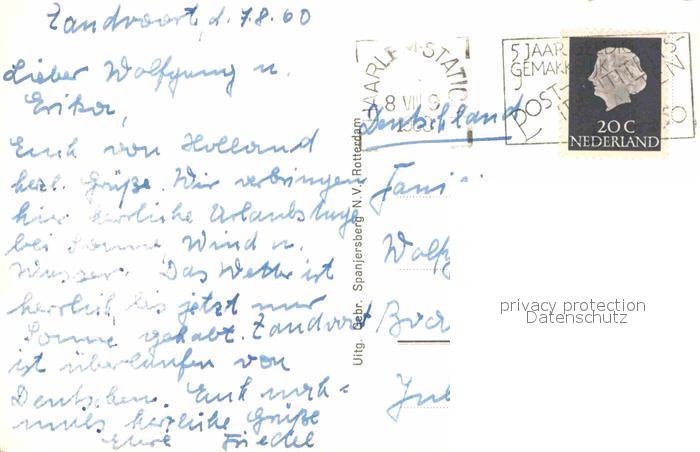 Zandvoort, d. 7.8.60
Lieber Wolfgang u.
Erika,
Euch von Holland
herl. Grüße. Wir verbringen
hier herrliche Urlaubstage
bei Sonne, Wind u.
Wasser. Das Wetter ist
herrlich bis jetzt nur
Sonne gehabt. Zandvoort
ist überlaufen von
Deutschen. Euch noch-
mals herzliche Grüße
Eure Friedel
Uitg. Gebr. Spanjersberg N.V., Rotterdam
HAARLEM-STATIO
8 VIII 9
1960
5 JAAR
GEMAKK
POST
20 C
NEDERLAND
Deutschland
Fami
Wolfg
privacy protection
Datenschutz